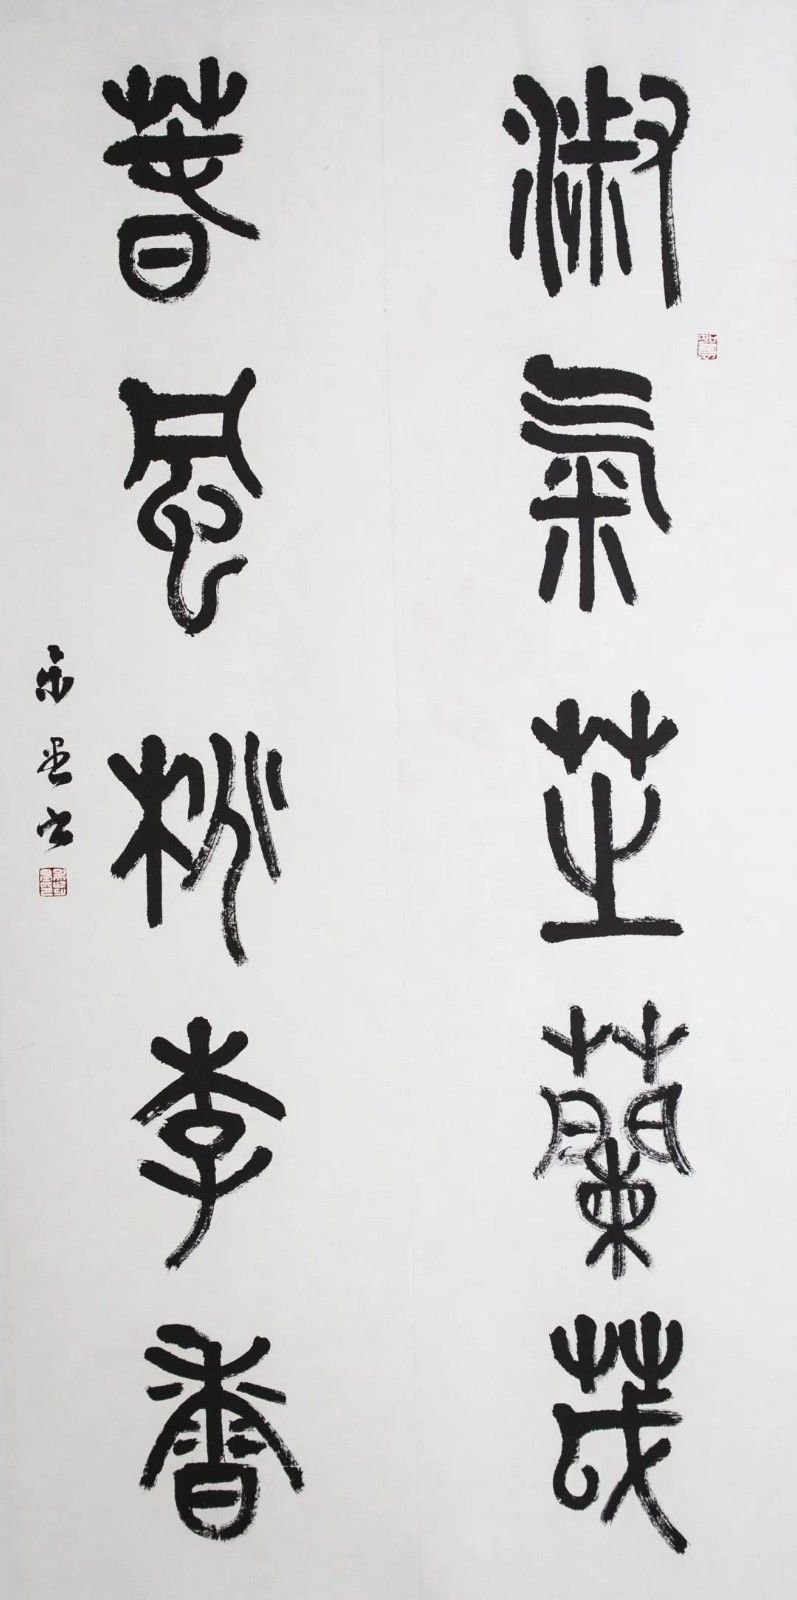 淑氣芝蘭茂
春風桃李香